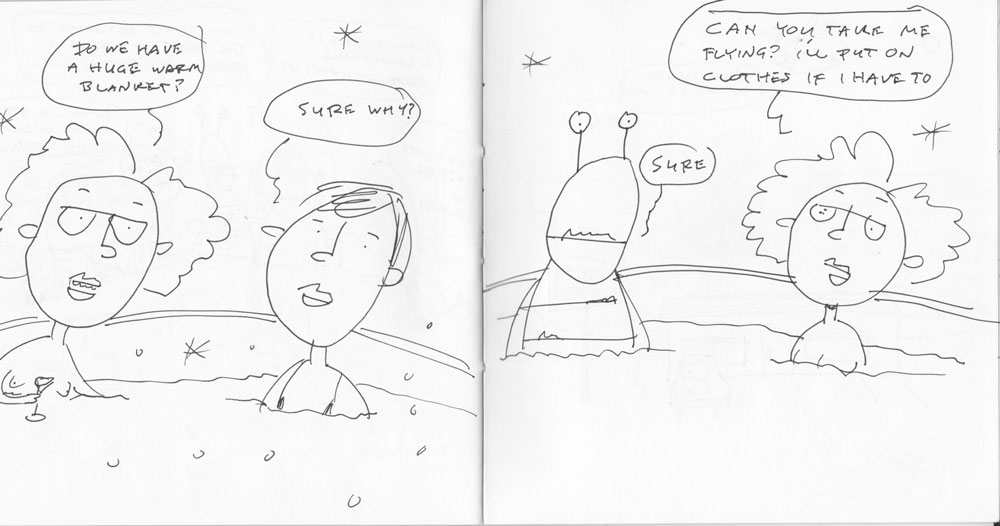 DO WE HAVE
A HUGE WARM
BLANKET?
SURE WHY?
CAN YOU TAKE ME
FLYING? I'LL PUT ON
CLOTHES IF I HAVE TO
SURE